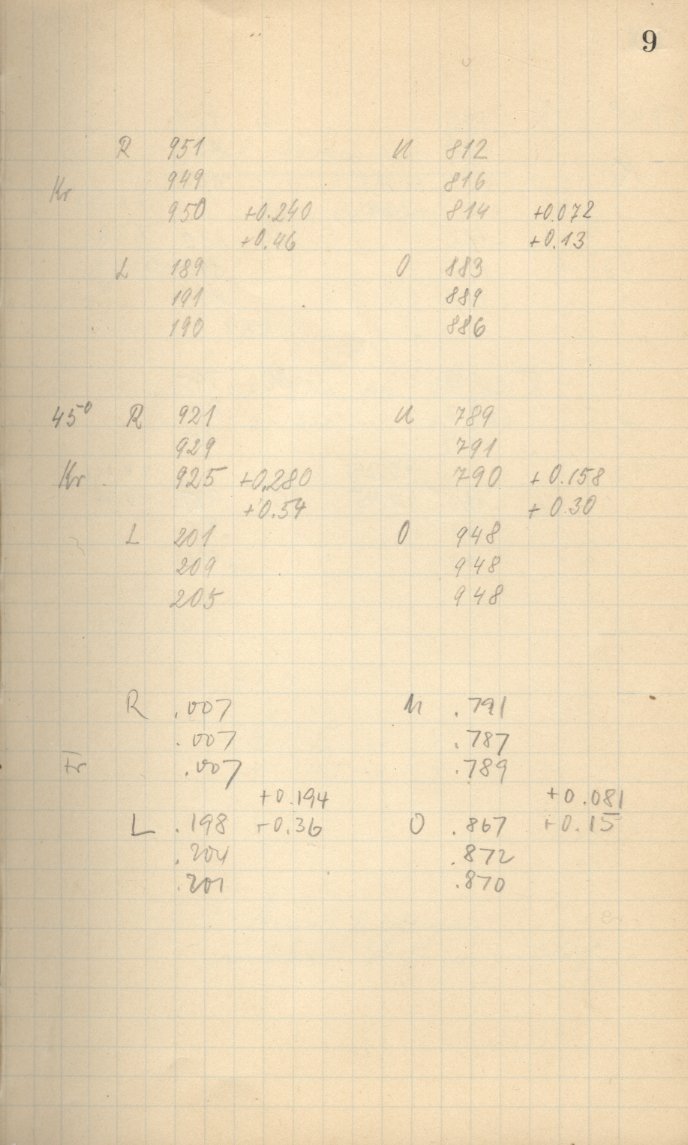 9
R 951 U 812
949 816
Kr
950 +0.240 814 +0.072
+0.46 +0.13
L 189 O 883
191 889
190 886
45° R 921 U 789
929 791
Kr 925 +0.280 790 +0.158
+0.54 +0.30
L 201 O 948
209 948
205 948
R .007 U .791
.007 .787
Fr .007 .789
+0.194 +0.081
L .198 +0.36 O .867 +0.15
.204 .872
.201 .870